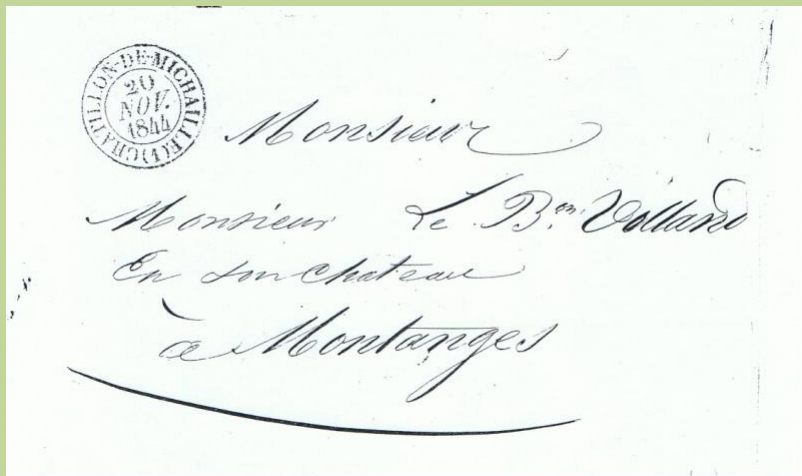 CHATILLON-DE-MICHAILLE (1)
20
NOV.
1844
Monsieur
Monsieur Le Bon Volland
En son chateau
à Montanges